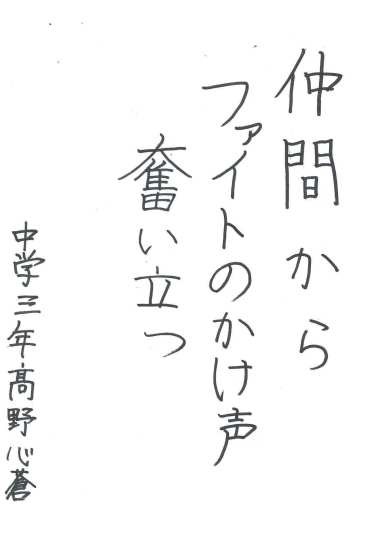 仲間から
ファイトのかけ声
奮い立つ
中学三年髙野心蒼